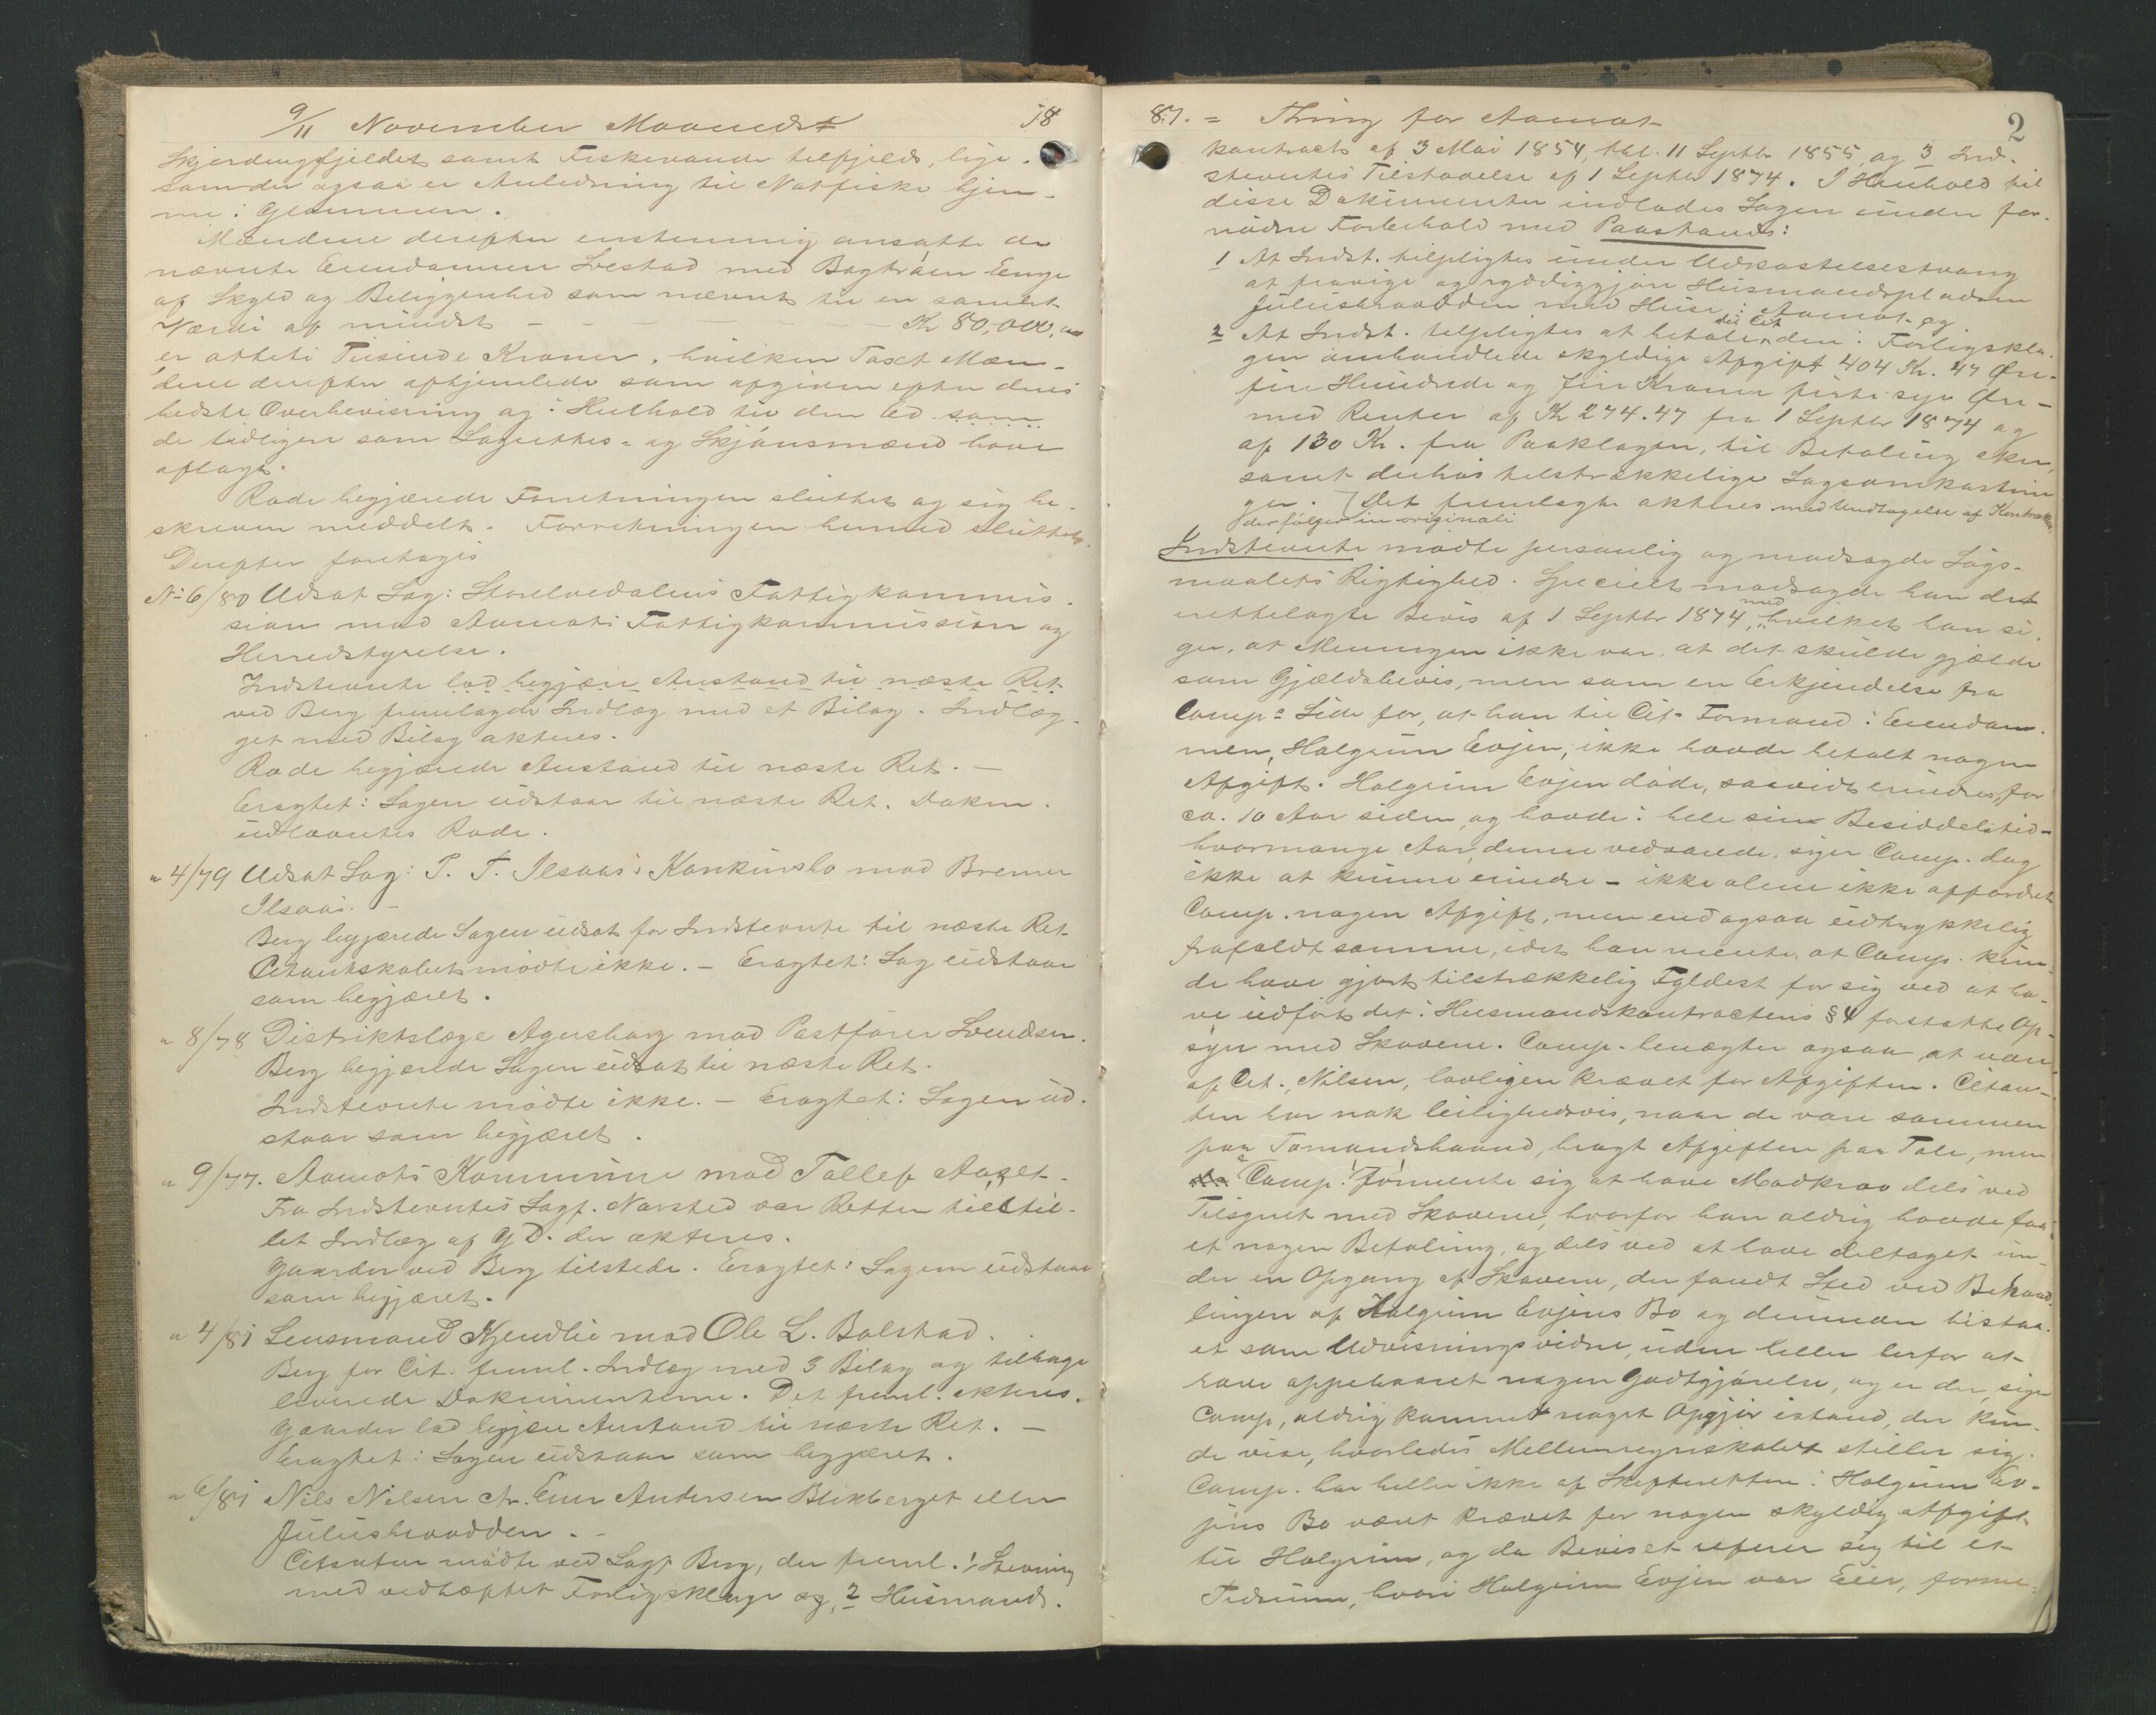 9/11 November Maaneds 18
Skjerdingfjeldet samt Fiskevande tilfjelds, lige-
somder ogsaa er Anledning til Notfiske hjem-
me i Glommen.
Mændene derefter enstemmig ansatte de
nævnte Eiendomme Livstad med Bagtraaen Enge
af Skyld og Beliggenhed som nævnt til en samlet
Værdi af mindst - - - - Kr 80,000,00
er otteti Tusinde Kroner, hvilken Taxt Mæn-
dene derefter afhjemlede som afgiven efter deres
bedste Overbevisning og i Henhold til den Ed som
de tidligere som Lagrettes- og Skjönsmænd have
aflagt.
Rode begjærede Forretningen sluttet og sig be-
skreven meddelt. Forretningen hermed sluttet.
Derefter foretoges
No 6/80 Udsat Sag: Storelvedalens Fattigkommis-
sion mod Aamots Fattigkommission og
Herredstyrelse.
Indstevnte lod begjære Anstand til næste Ret
ved Berg fremlagde Indlæg med et Bilag. Indlæg-
get med Bilag akteres.
Rode begjærede Anstand til næste Ret. -
Eragtet: Sagen udstaar til næste Ret. Dokm.
udlaantes Rode.
" 4/79 Udsat Sag: P. T. Ilsaas's Konkursbo mod Bremer
Ilsaas. -
Berg begjærede Sagen udsat for Indstevnte til næste Ret
Citantskabet mödte ikke. - Eragtet: Sag udstaar
som begjæret.
" 8/78 Distriktslæge Agersborg mod Postförer Svendsen.
Berg begjærede Sagen udsat til næste Ret.
Indstevnte mödte ikke. - Eragtet: Sagen ud-
staar som begjæret.
" 9/77. Aamots Kommune mod Tollef Aaset.
Fra Indstevntes Sagf. Narsted var Retten tilstil-
let Indlæg af G D. der akteres.
Gaarder ved Berg tilstede. Eragtet: Sagen udstaar
som begjæret.
" 4/81 Lensmand Kjendlie mod Ole L. Bolstad.
Berg for Cit. freml. Indlæg med 3 Bilag og tilbage
leverede Dokumenterne. Det freml. akteres.
Gaarder lod begjære Anstand til næste Ret. -
Eragtet: Sagen udstaar som begjæret.
" 6/81 Nils Nilsen ctr. Even Andersen Blikberget eller
Julusbraadden. -
Citanten mödte ved Sagf. Berg, der freml. 1, Stevning
med vedhæftet Forligsklage og, 2 Husmands-
81. = Thing for Aamot 2
kontract af 3 Mai 1854, thl. 11 Septbr 1855, og 3 Ind-
stevntes Tilstaaelse af 1 Septbr 1874. I Henhold til
disse Dokumenter indlodes Sagen under for-
nöden Forbehold med Paastand:
1 At Indst. tilpligtes under Udkastelsestvang
at fravige og ryddiggjöre Husmandspladsen
Julusbraadden med Huse i Aamot og
2 At Indst. tilpligtes at betale til Cit. den i Forligskla-
gen omhandlede skyldige Afgift 404 Kr. 47 Öre-
fire Hundrede og fire Kroner förti syv Öre -
med Renter af Kr 274.47 fra 1 Septbr 1874 og
af 130 Kr. fra Paaklagen, til Betaling sker,
samt derhos tilstrækkelige Sagsomkostnin
ger. Det fremlagte akteres med Undtagelse af Kontrakten,
der fölger in originali
Indstevnte mödte personlig og modsagde Sögs-
maalets Rigtighed. Specielt modsagde han det
irettelagte Bevis af 1 Septbr 1874, med hvilket han si-
ger, at Meningen ikke var, at det skulde gjælde
som Gjældsbevis, men som en Erkjendelse fra
Comp.s Side for, at han til Cit.s Formand i Eiendom-
men, Halgrim Evjen, ikke havde betalt nogen
Afgift. Halgrim Evjen döde, saavidt erindres, for
ca. 10 Aar siden og havde i hele sin Besiddelstid -
hvormange Aar denne vedvarede, siger Comp. dog
ikke at kunne erindre - ikke alene ikke affordret
Comp. nogen Afgift, men endogsaa udtrykkelig
frafaldt samme, idet han mente, at Comp. kun-
de have gjort tilstrækkelig Fyldest for sig ved at ha-
ve udfört det i Husmandskontractens § 4 fastsatte Op-
syn med Skovene. Comp. benægter ogsaa, at være
af Cit., Nilsen, lovligen krævet for Afgiften. Citan-
ten har nok leilighedsvis, naar de vare sammen
paa Tomandshaand, bragt Afgiften paa Tale, men
Comp. formente sig at have Modkrav dels ved
Tilsynet med Skovene, hvorfor han aldrig havde faa-
et nogen Betaling, og dels ved at have deltaget un-
der en Opgang af Skovene, der fandt Sted ved Behand-
lingen af Halgrim Evjens Bo og derunder bistaa-
et som Udvisningsvidne, uden heller herfor at
have oppebaaret nogen Godtgjörelse, og er der, siger
Comp, aldrig kommet noget Opgjör istand, der kun-
de vise, hvorledes Mellemregnskabet stiller sig.
Comp. har heller ikke af Skifteretten i Halgrim Ev-
jens Bo været krævet for nogen skyldig Afgift
til Halgrim, og da Beviset referer sig til et
Tidsrum, hvori Halgrim Evjen var Eier, forme-